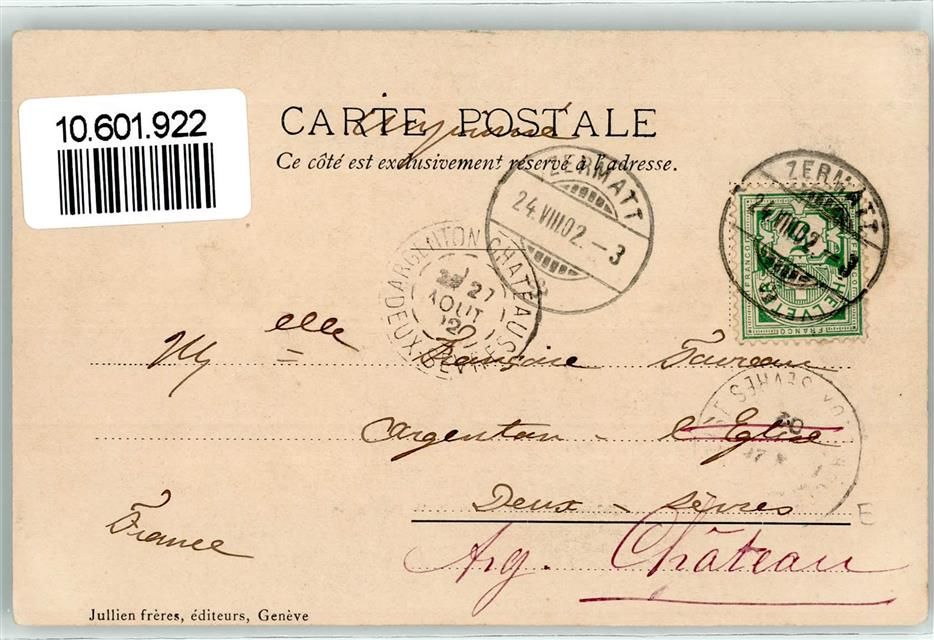 10.601.922
CARTE POSTALE
Ce côté est exclusivement réservé à l'adresse.
ZERMATT
24.VIII.02.-3
ZERMATT
24.VIII.02.-3
HELVETIA
FRANCO
ARGENTON CHATEAU
27
AOUT
02
Mlle Françoise Favreau
Argenton - l'Eglise
Deux-Sèvres
France
Arg. Château
SEVRES
02
E
Jullien frères, éditeurs, Genève